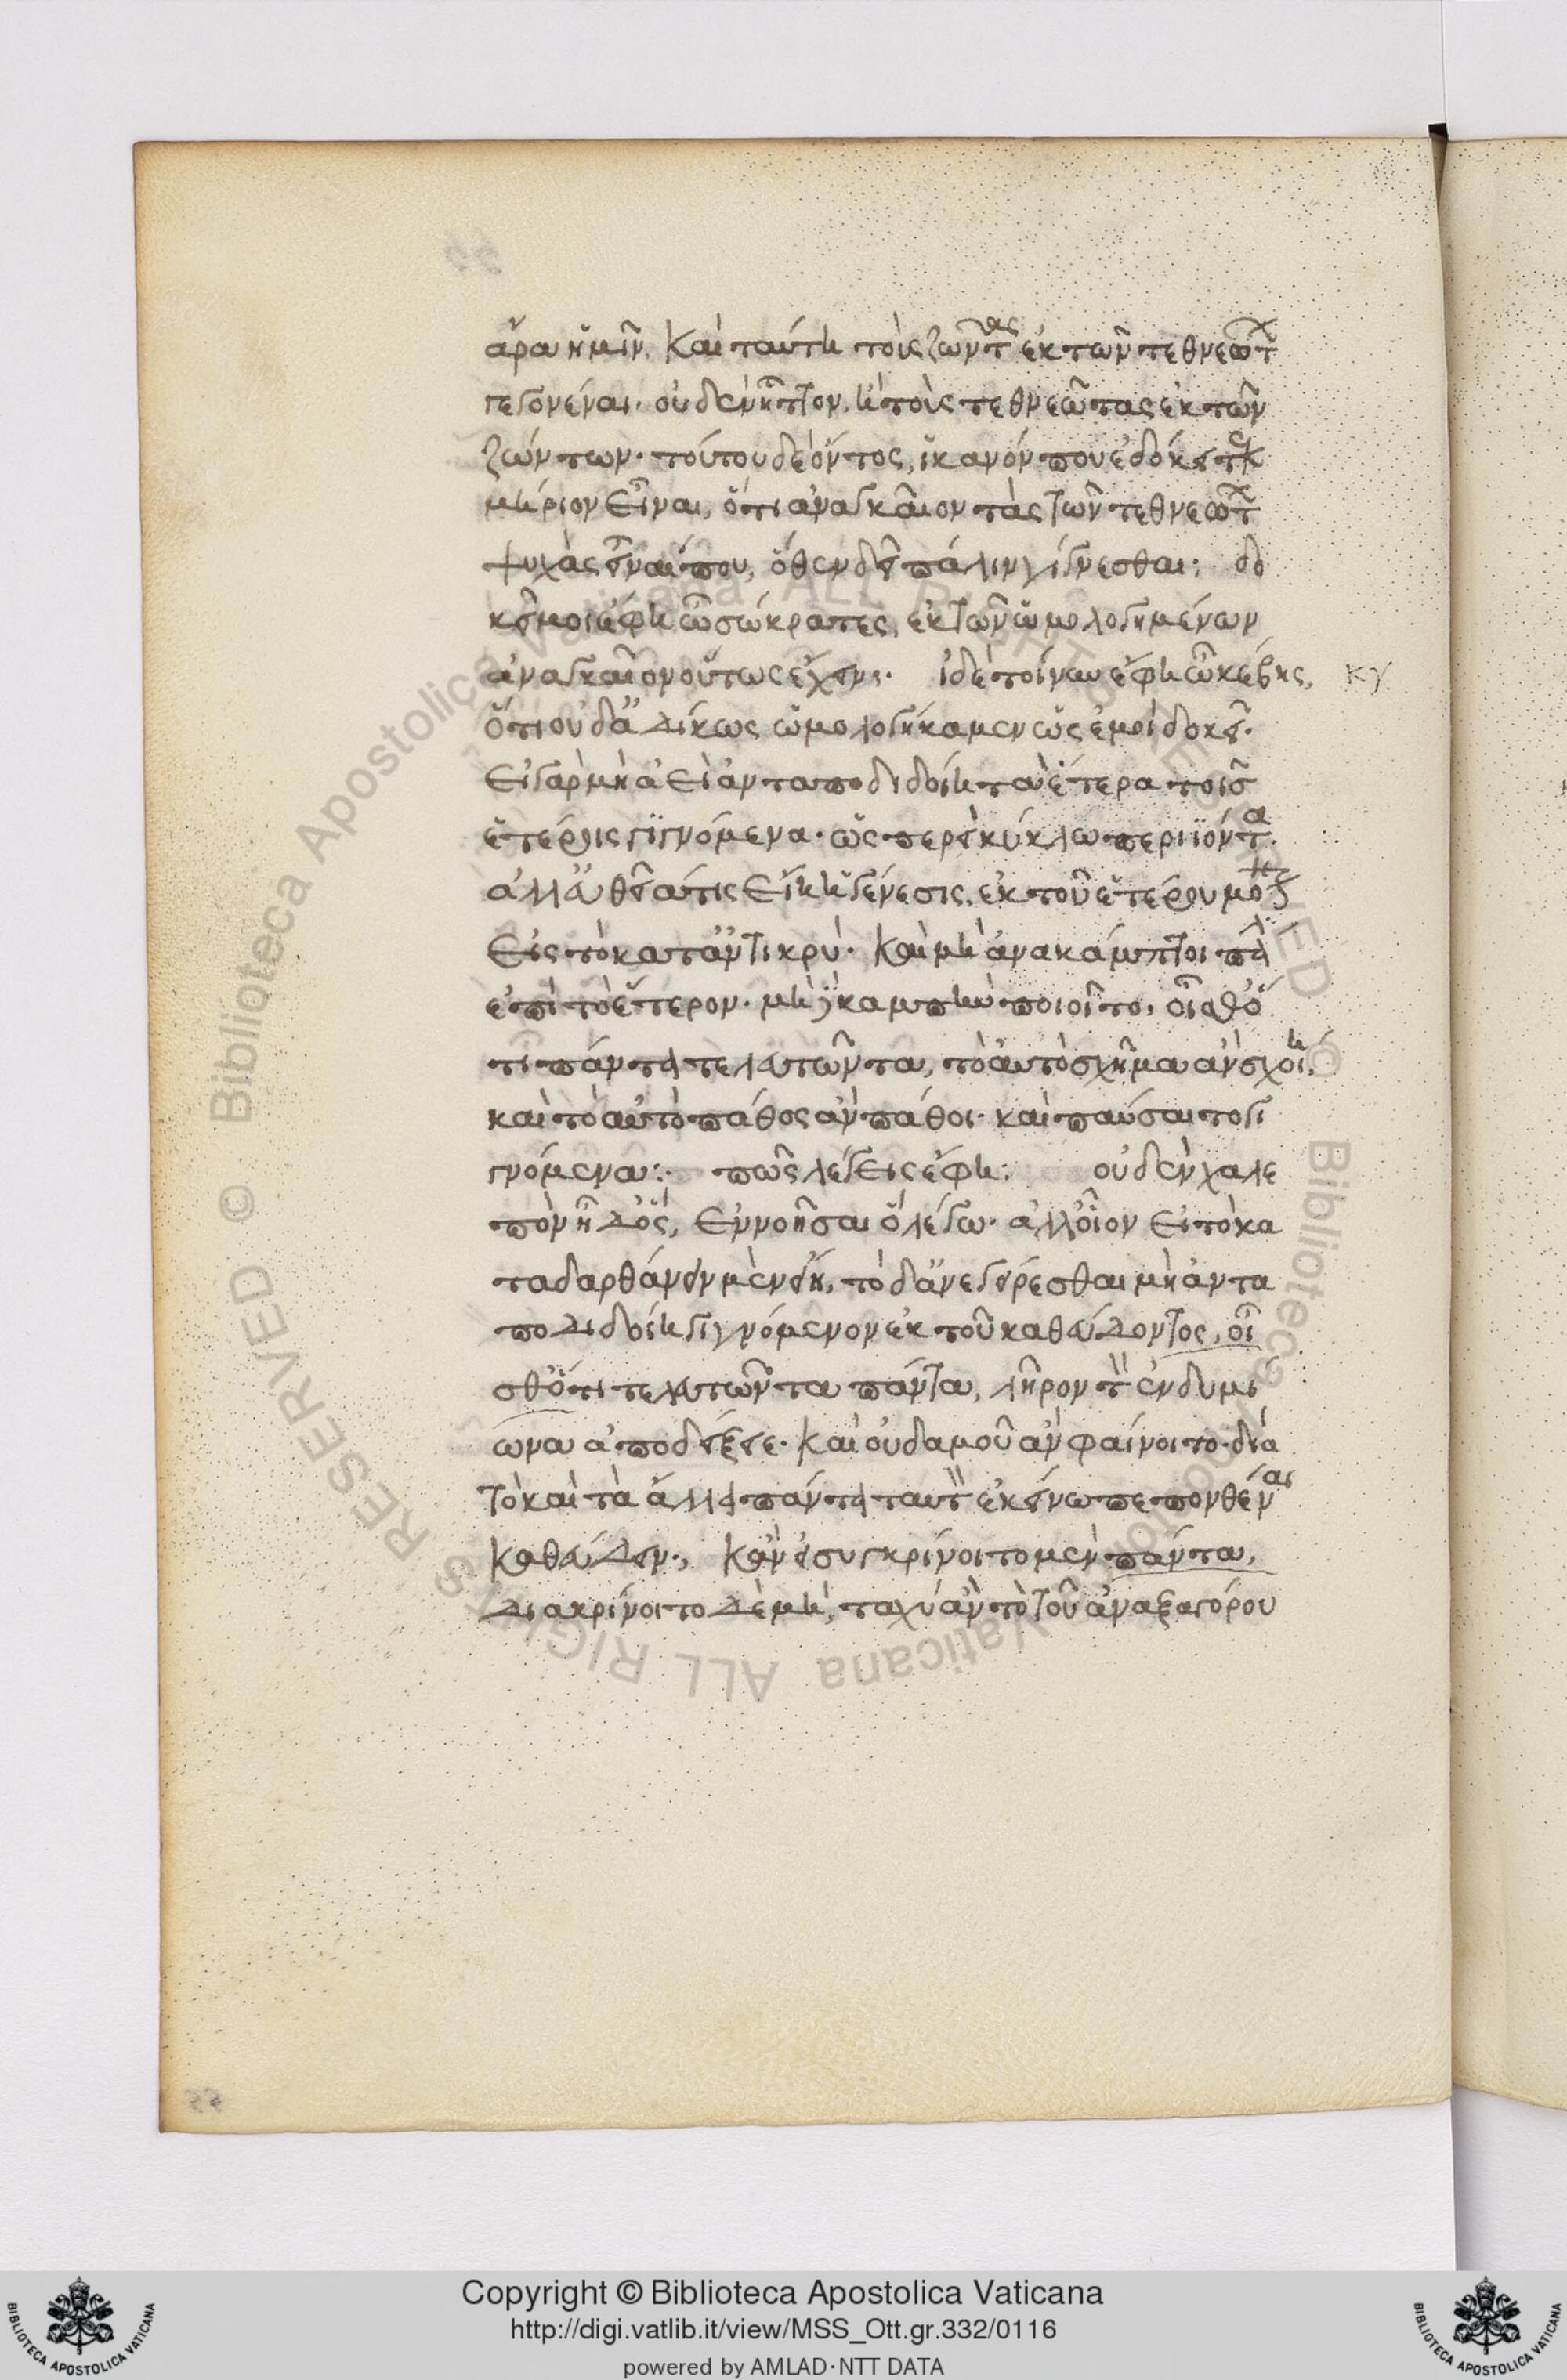 ἄρα ἡμῖν. καὶ ταύτη τοὺς ζῶντας ἐκ τῶν τεθνεώτων
γεγονέναι· οὐδὲν ἧττον, ἢ τοὺς τεθνεῶτας ἐκ τῶν
ζώντων· τούτου δὲ ὄντος, ἱκανόν που ἐδόκει τεκ
μήριον εἶναι, ὅτι ἀναγκαῖον τὰς τῶν τεθνεώτων
ψυχὰς εἶναί που, ὅθεν δεῖ πάλιν γίγνεσθαι: δο
κεῖ μοι ἔφη ὦ σώκρατες, ἐκ τῶν ὡμολογημένων
ἀναγκαῖον οὕτως ἔχειν: ἰδὲ τοίνυν ἔφη ὦ κέβης, κγ
ὅτι οὐδ' ἀδίκως ὡμολογήκαμεν ὡς ἐμοὶ δοκεῖ.
εἰ γὰρ μὴ ἀεὶ ἀνταποδιδοίη τὰ ἕτερα τοῖς
ἑτέροις γιγνόμενα· ὡσπερεὶ κύκλω περιϊόντα.
ἀλλ' εὐθεῖά τις εἴη ἡ γένεσις, ἐκ τοῦ ἑτέρου μόνον
εἰς τὸ καταντικρύ· καὶ μὴ ἀνακάμπτοι πάλιν
ἐπὶ τὸ ἕτερον· μηδὲ καμπὴν ποιοῖτο, οἶσθ' ὅ
τι πάντα τελευτῶντα, τὸ αὐτὸ σχῆμα ἂν σχοίη,
καὶ τὸ αὐτὸ πάθος ἂν πάθοι· καὶ παύσαιτο γι
γνόμενα: πῶς λέγεις ἔφη: οὐδὲν χαλε
πὸν ἦ δ' ὅς, ἐννοῆσαι ὃ λέγω· ἀλλ' οἷον εἰ τὸ κα
ταδαρθάνειν μὲν εἴη, τὸ δ' ἀνεγείρεσθαι μὴ ἀντα
ποδιδοίη γιγνόμενον ἐκ τοῦ καθεύδοντος, οἶ
σθ' ὅτι τελευτῶντα πάντα, λῆρον τὸν ἐνδυμί
ωνα ἀποδείξειε· καὶ οὐδαμοῦ ἂν φαίνοιτο· διὰ
τὸ καὶ τὰ ἄλλα πάντα ταυτὸν ἐκείνω πεπονθέναι
καθεύδειν., κἂν εἰ συγκρίνοιτο μὲν πάντα,
διακρίνοιτο δὲ μή, ταχὺ ἂν τὸ τοῦ ἀναξαγόρου
Copyright © Biblioteca Apostolica Vaticana
http://digi.vatlib.it/view/MSS_Ott.gr.332/0116
powered by AMLAD·NTT DATA